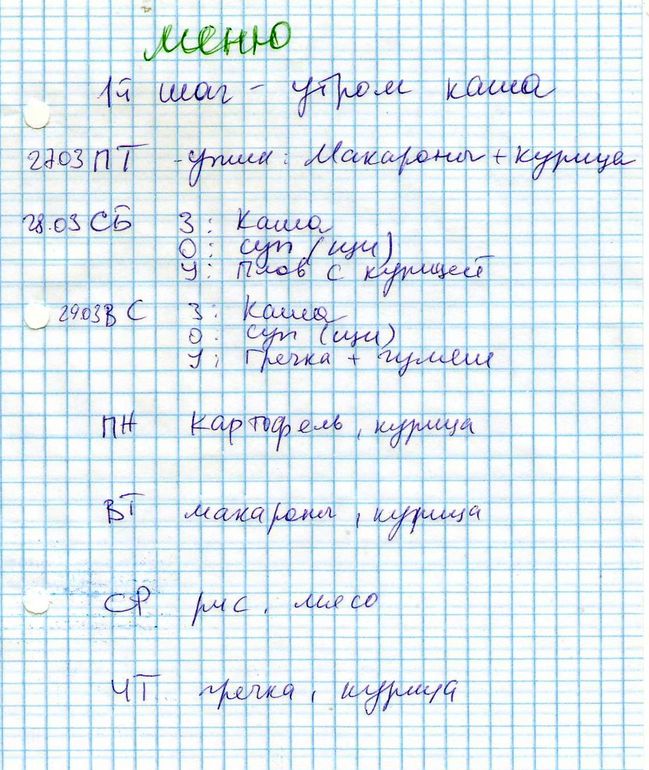 меню
1й шаг - утром каша
27.03 ПТ - ужин: Макароны + курица
28.03 СБ З: Каша
О: суп (щи)
У: Плов с курицей
29.03 ВС З: Каша
О: суп (щи)
У: Гречка + гуляш
ПН Картофель, курица
ВТ макароны, курица
СР рис, мясо
ЧТ гречка, курица